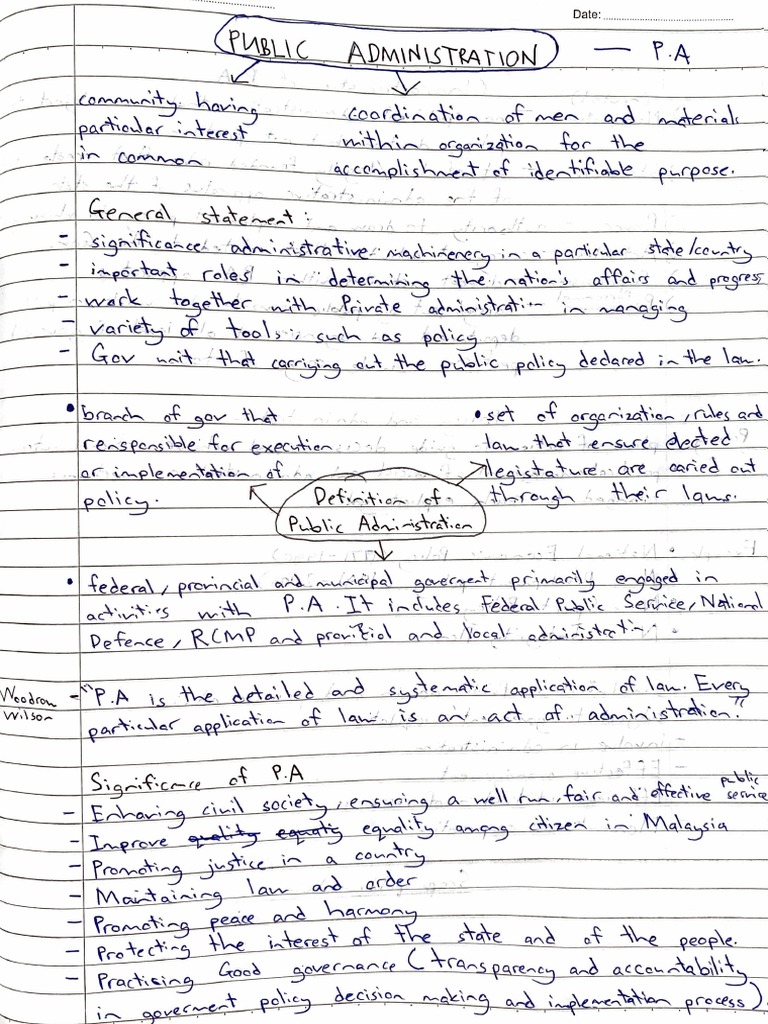 Date:
PUBLIC ADMINISTRATION — P.A
community having
particular interest
in common
coordination of men and materials
within organization for the
accomplishment of identifiable purpose.
General statement:
- significance administrative machinenery in a particular state/country
- important roles in determining the nation's affairs and progress
- work together with Private administration in managing
- variety of tools, such as policy
- Gov unit that carrying out the public policy declared in the law.
• branch of gov that
rensponsible for execution
or implementation of
policy.
• set of organization, rules and
law that ensure elected
legistature are caried out
through their laws.
Definition of
Public Administration
• federal, provincial and municipal goverment primarily engaged in
activities with P.A. It includes Federal Public Service, National
Defence, RCMP and and local administration.
Woodrow
Wilson
- "P.A is the detailed and systematic application of law. Every
particular application of law is an act of administration."
Significance of P.A
- Enhaving civil society, ensuring a well run, fair and effective public service
- Improve quality equaty equality among citizen in Malaysia
- Promoting justice in a country
- Maintaining law and order
- Promoting peace and harmony
- Protecting the interest of the state and of the people.
- Practising Good governance (transparency and accountability
in goverment policy decision making and implementation process)